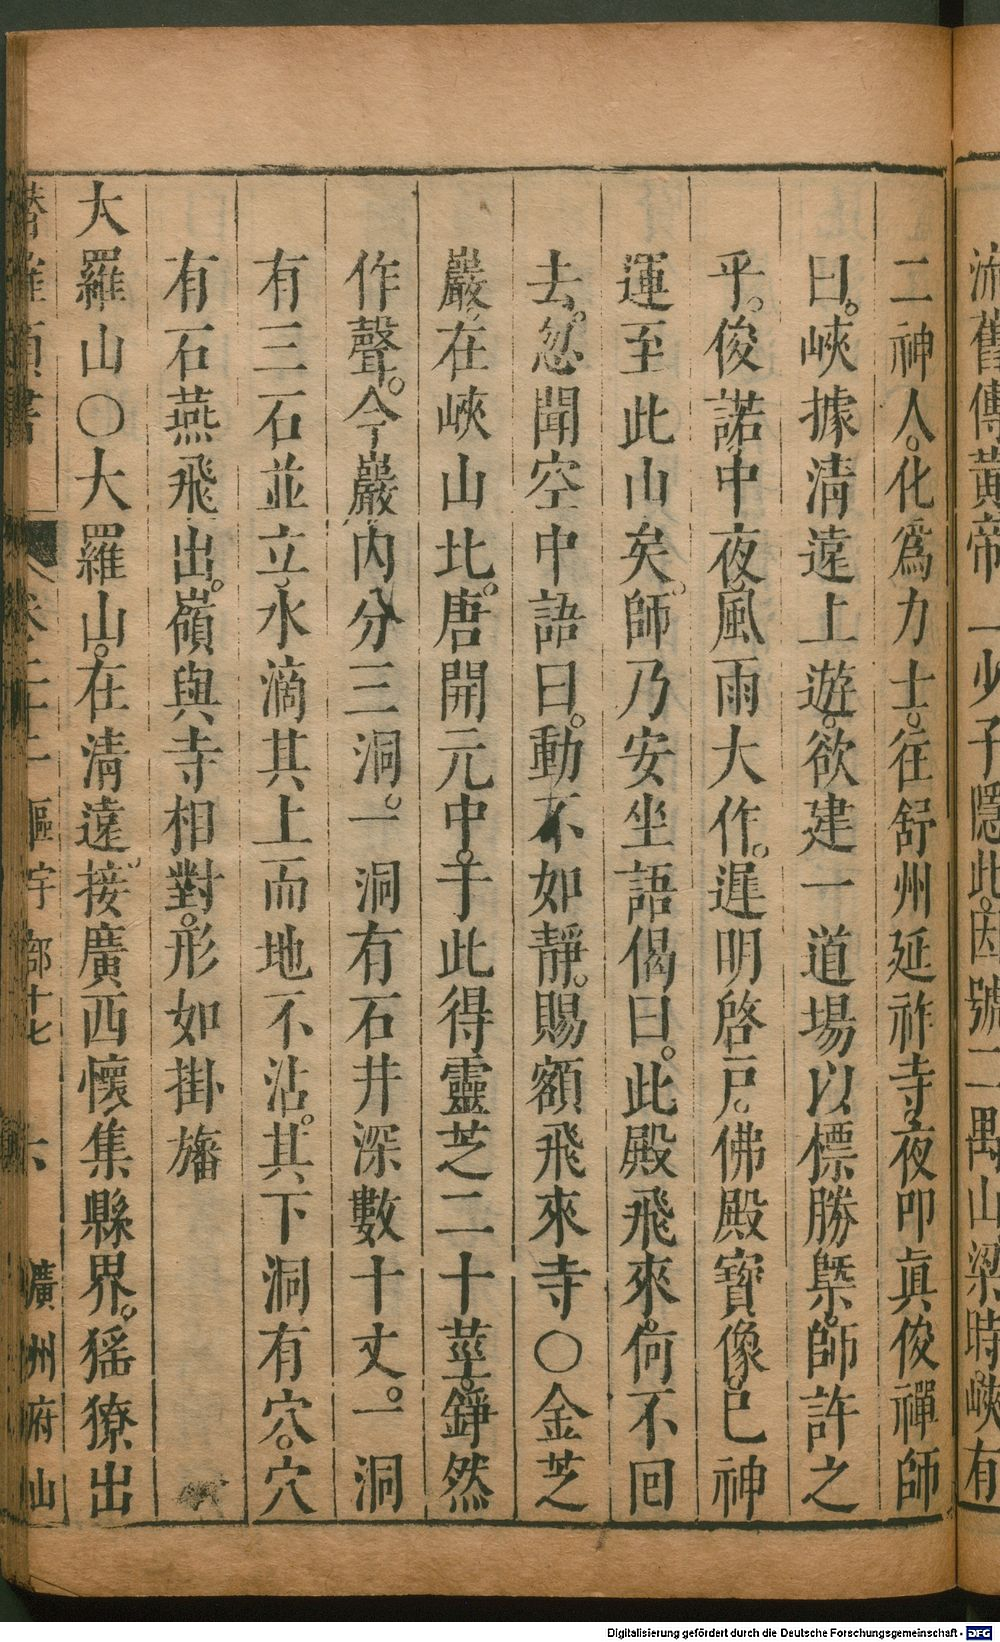 流舊傳黃帝二少子隱此。因號二禺山梁時峽有
二神人。化爲力士。往舒州延祚寺。夜叩眞俊禪師
曰。峽據淸遠上遊。欲建一道場以標勝槩。師許之
乎。俊諾。中夜風雨大作。遲明啓戸。佛殿寳像。已神
運至此山矣。師乃安坐語偈曰。此殿飛來。何不囘
去。忽聞空中語曰。動不如靜。賜額飛來寺〇金芝
巖。在峽山北。唐開元中。于此得靈芝二十莖。錚然
作聲。今巖內分三洞。一洞有石井深數十丈。一洞
有三石並立。水滴其上而地不沾。其下洞有穴。穴
有石燕飛出。嶺與寺相對。形如掛旛
大羅山〇大羅山。在淸遠。接廣西懷集縣界。猺獠出
卷二十一 區宇部十七 六 廣州府山
Digitalisierung gefördert durch die Deutsche Forschungsgemeinschaft - DFG